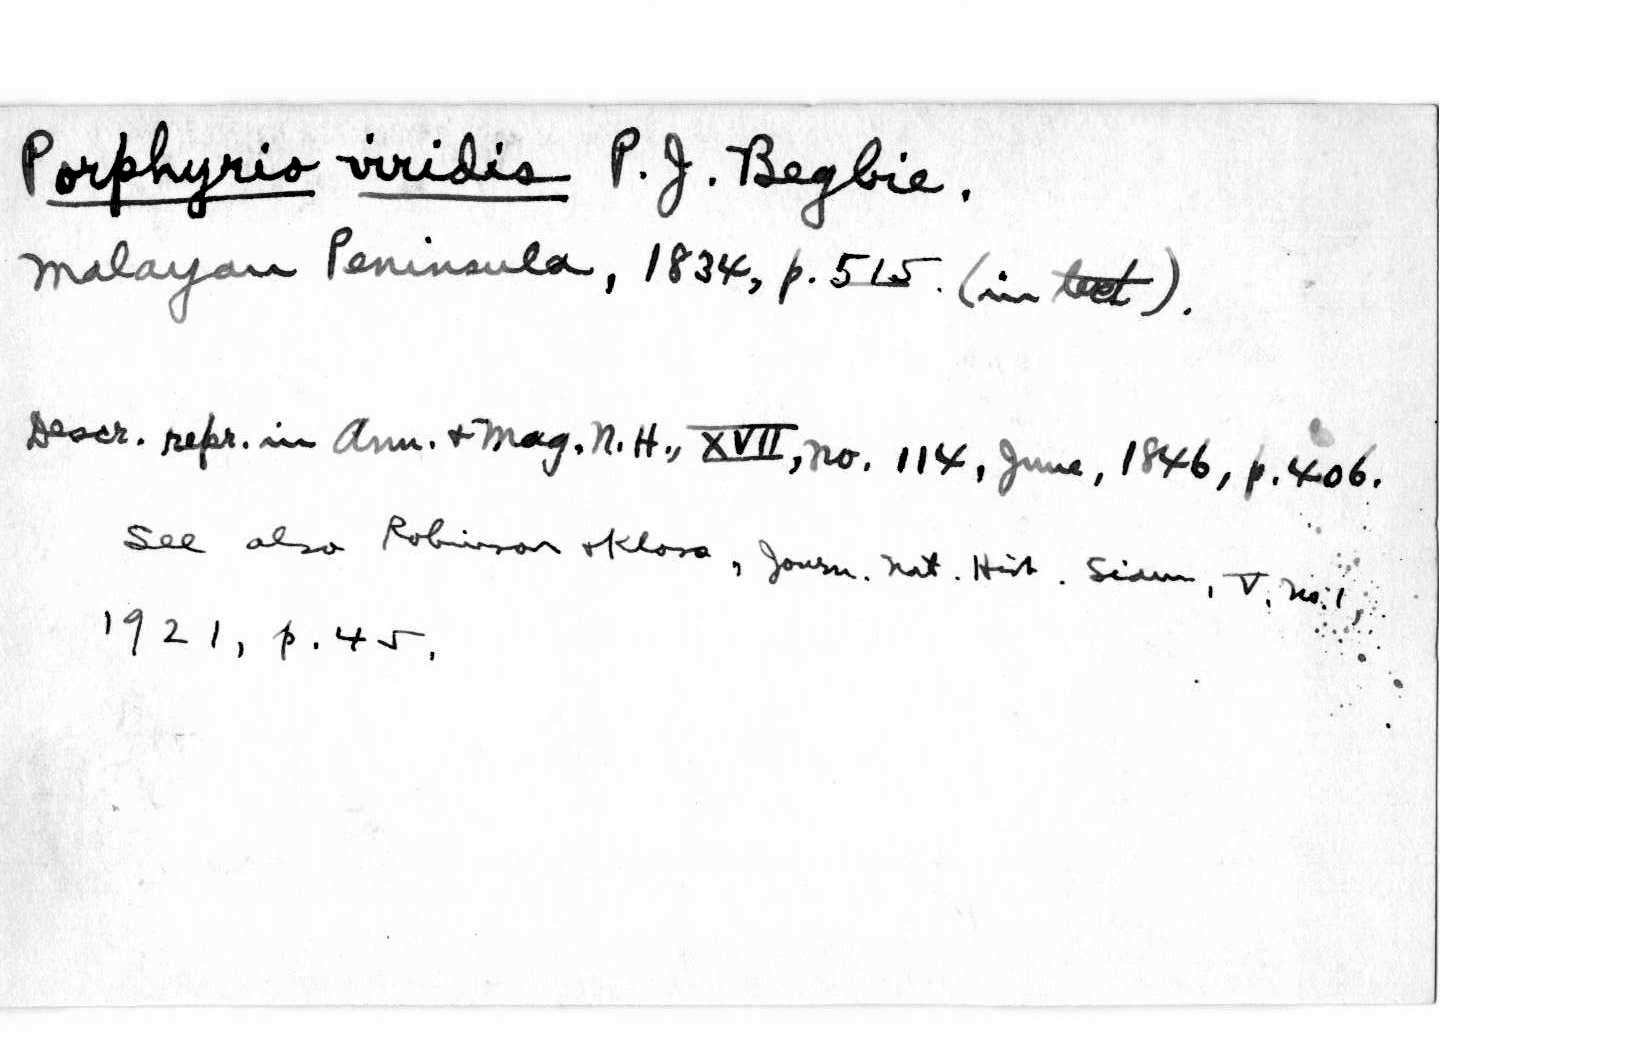 Porphyrio viridis P. J. Begbie.
Malayan Peninsula, 1834, p. 515. (in text).
Descr. repr. in Ann. & Mag. N. H., XVII, no. 114, June, 1846, p. 406.
See also Robinson & Kloss, Journ. Nat. Hist. Siam, V, no. 1,
1921, p. 45.